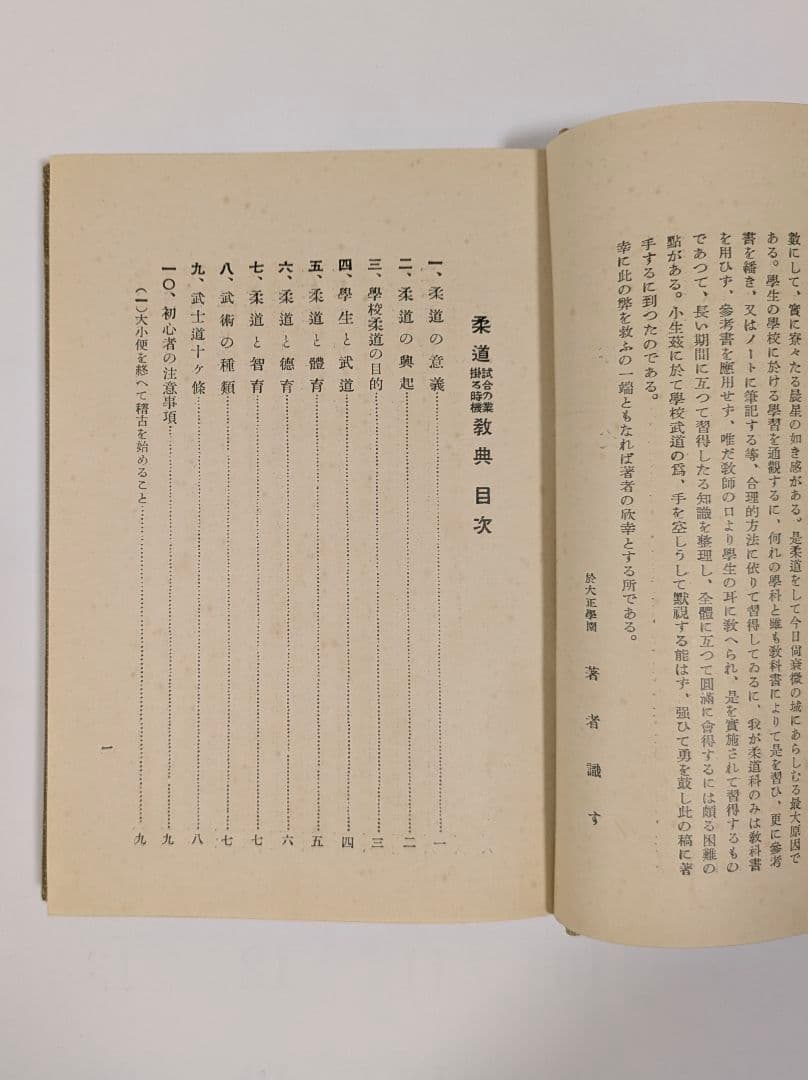 數にして、實に寮々たる晨星の如き感がある。是柔道をして今日尙衰微の域にあらしむる最大原因で
ある。學生の學校に於ける學習を通觀するに、何れの學科と雖も敎科書によりて是を習ひ、更に參考
書を繙き、又はノートに筆記する等、合理的方法に依りて習得してゐるに、我が柔道科のみは敎科書
を用ひず、參考書を應用せず、唯だ敎師の口より學生の耳に敎へられ、是を實施されて習得するもの
であつて、長い期間に亙つて習得したる知識を整理し、全體に亙つて圓滿に會得するには頗る困難の
點がある。小生玆に於て學校武道の爲、手を空しうして默視する能はず、强ひて勇を鼓し此の稿に著
手するに到つたのである。
幸に此の弊を救ふの一端ともなれば著者の欣幸とする所である。
於大正學園 著者識す
柔道試合の業掛る時機敎典目次
一、柔道の意義……一
二、柔道の興起……二
三、學校柔道の目的……三
四、學生と武道……四
五、柔道と體育……五
六、柔道と德育……六
七、柔道と智育……七
八、武術の種類……七
九、武士道十ヶ條……八
一〇、初心者の注意事項……九
(一)大小便を終へて稽古を始めること……九
一